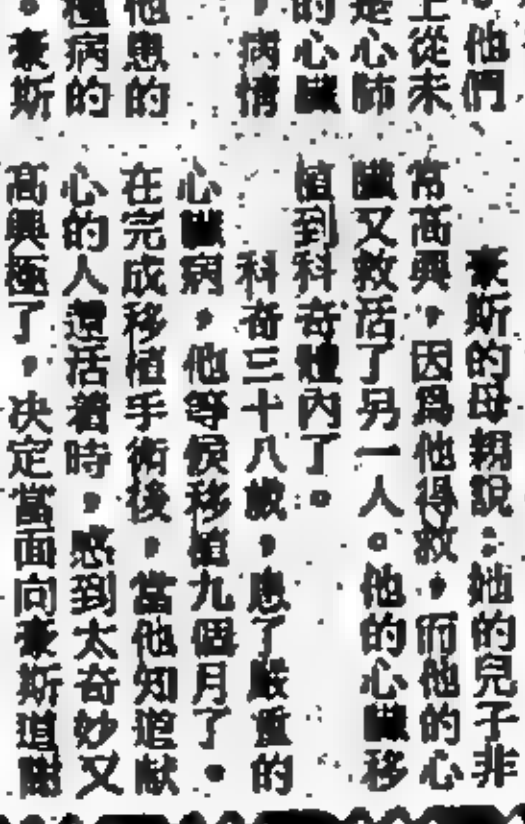 。他們
上從未
是心肺
的心臟
，病情
他患的
種病的
。豪斯
豪斯的母親說：她的兒子非
常高興，因爲他得救，而他的心
臟又救活了另一人。他的心臟移
植到科奇體內了。
科奇三十八歲，患了嚴重的
心臟病，他等候移植九個月了。
在完成移植手術後，當他知道献
心的人還活着時，感到太奇妙又
高興極了，決定當面向豪斯道謝